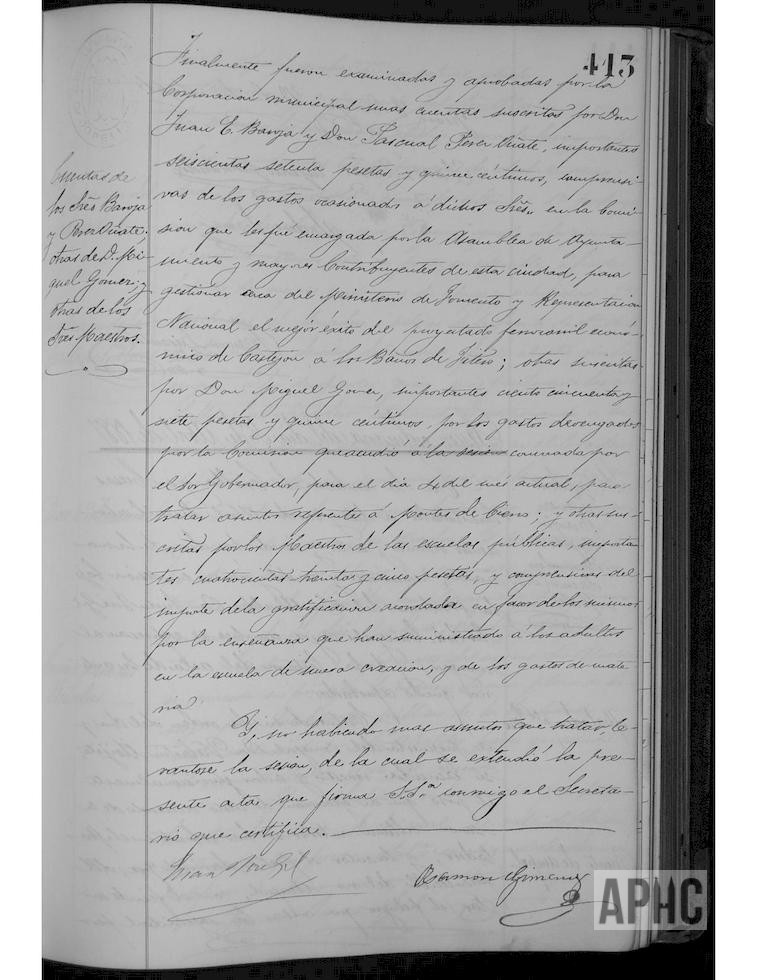 413
Finalmente fueron examinadas y aprobadas por la
Corporacion municipal unas cuentas suscritas por Don
Juan C. Baroja y Don Pascual Perer Oñate, importantes
seiscientas setenta pesetas y quince céntimos, comprensi-
vas de los gastos ocasionados á dichos Sres. en la Comi-
sion que les fue encargada por la Asamblea de Ayunta-
miento y mayores Contribuyentes de esta ciudad, para
gestionar cerca del Ministerio de Fomento y Representacion
Nacional el mejor éxito del proyectado ferrocarril econó-
mico de Castejon á los Baños de Fitero; otras suscritas
por Don Miguel Gomez, importantes ciento cincuenta y
siete pesetas y quince céntimos, por los gastos devengados
por la Comision que acudió á la sesion convocada por
el Sor Gobernador, para el dia 4 del mes actual, para
tratar asuntos referente á Montes de Cierzo; y otras sus-
critas por los Maestros de las escuelas públicas, importan-
tes cuatrocientas treinta y cinco pesetas, y comprensivas del
importe de la gratificacion acordada en favor de los mismos
por la enseñanza que han suministrado á los adultos
en la escuela de nueva creacion, y de los gastos de mate-
ria
Y, no habiendo mas asuntos que tratar, le-
vantose la sesion, de la cual se extendió la pre-
sente acta que firma S.Sª conmigo el Secreta-
rio que certifica.
Cuentas de
los Sres Baroja
y Perer Oñate;
otras de D. Mi-
guel Gomez; y
otras de los
Sres Maestros.
Juan
Ramon Gimenez
APHC